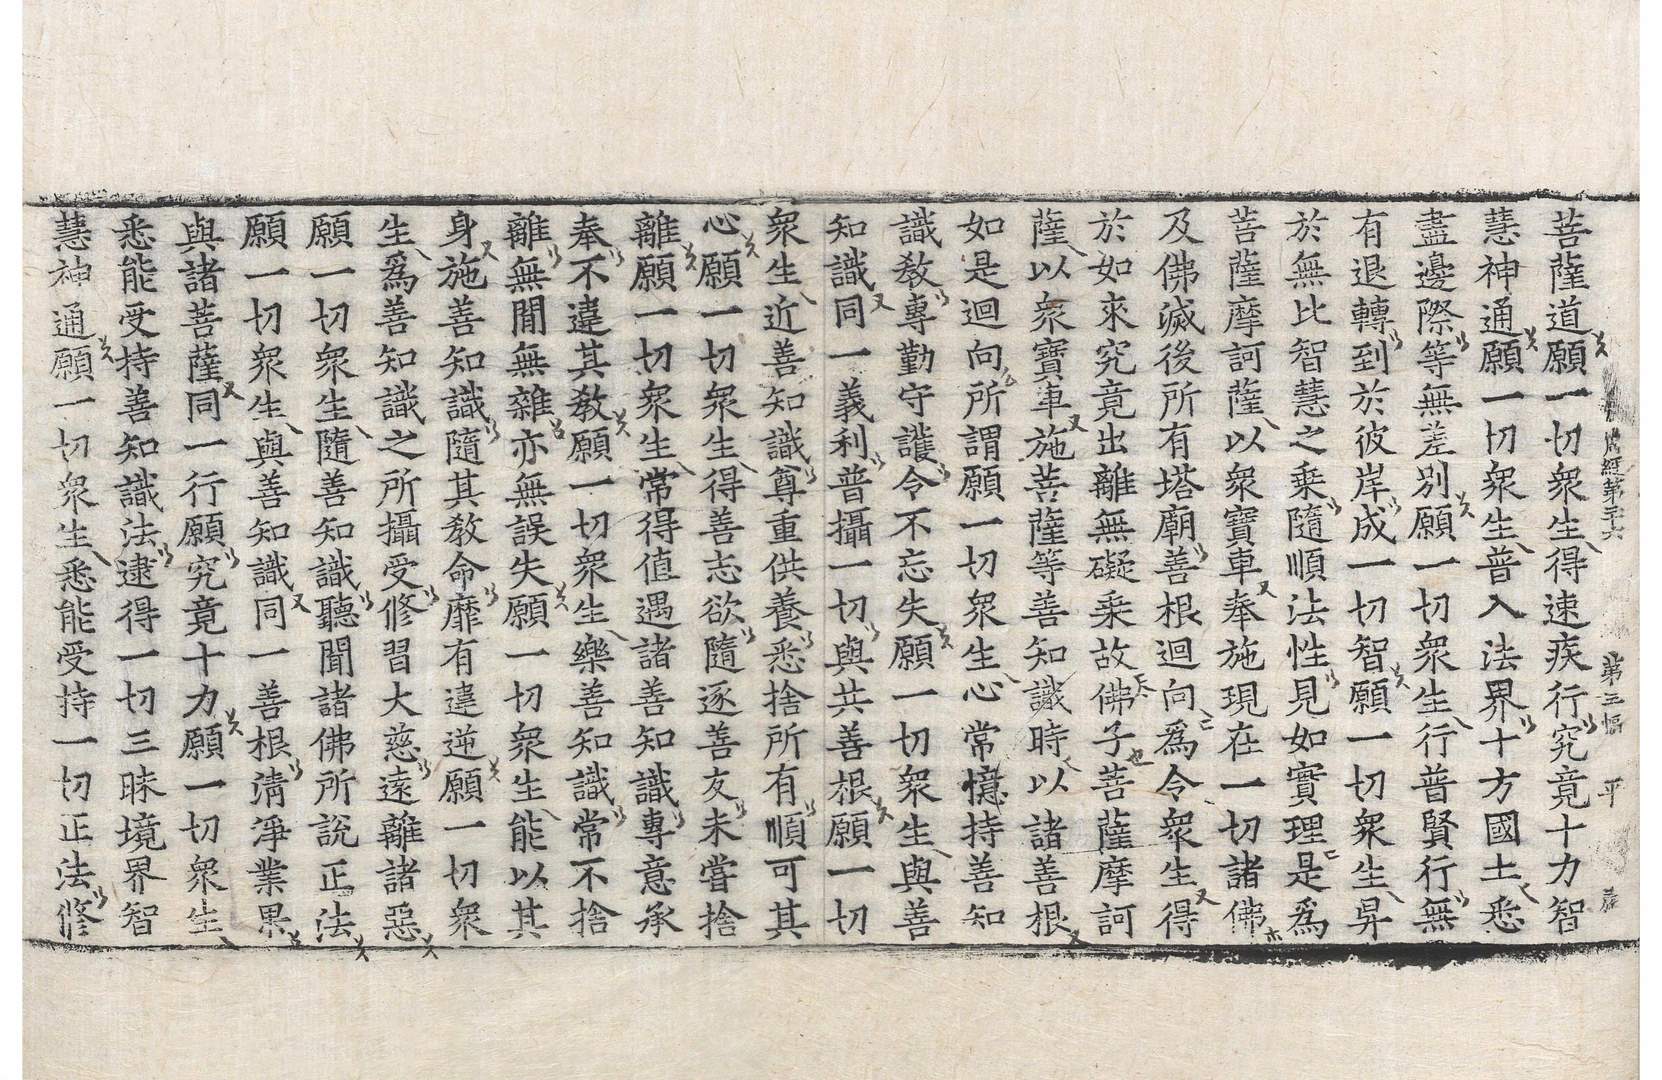 菩薩道願一切衆生得速疾行究竟十力智
慧神通願一切衆生普入法界十方國土悉
盡邊際等無差別願一切衆生行普賢行無
有退轉到於彼岸成一切智願一切衆生昇
於無比智慧之乗隨順法性見如實理是爲
菩薩摩訶薩以衆寶車奉施現在一切諸佛
及佛滅後所有塔廟善根迴向爲令衆生得
於如來究竟出離無礙乗故佛子菩薩摩訶
薩以衆寶車施菩薩等善知識時以諸善根
如是迴向所謂願一切衆生心常憶持善知
識教專勤守護令不忘失願一切衆生與善
知識同一義利普攝一切與共善根願一切
衆生近善知識尊重供養悉捨所有順可其
心願一切衆生得善志欲隨逐善友未甞捨
離願一切衆生常得值遇諸善知識專意承
奉不違其教願一切衆生樂善知識常不捨
離無間無雜亦無誤失願一切衆生能以其
身施善知識隨其教命靡有違逆願一切衆
生爲善知識之所攝受修習大慈遠離諸惡
願一切衆生隨善知識聽聞諸佛所說正法
願一切衆生與善知識同一善根清淨業果
與諸菩薩同一行願究竟十力願一切衆生
悉能受持善知識法逮得一切三昧境界智
慧神通願一切衆生悉能受持一切正法修